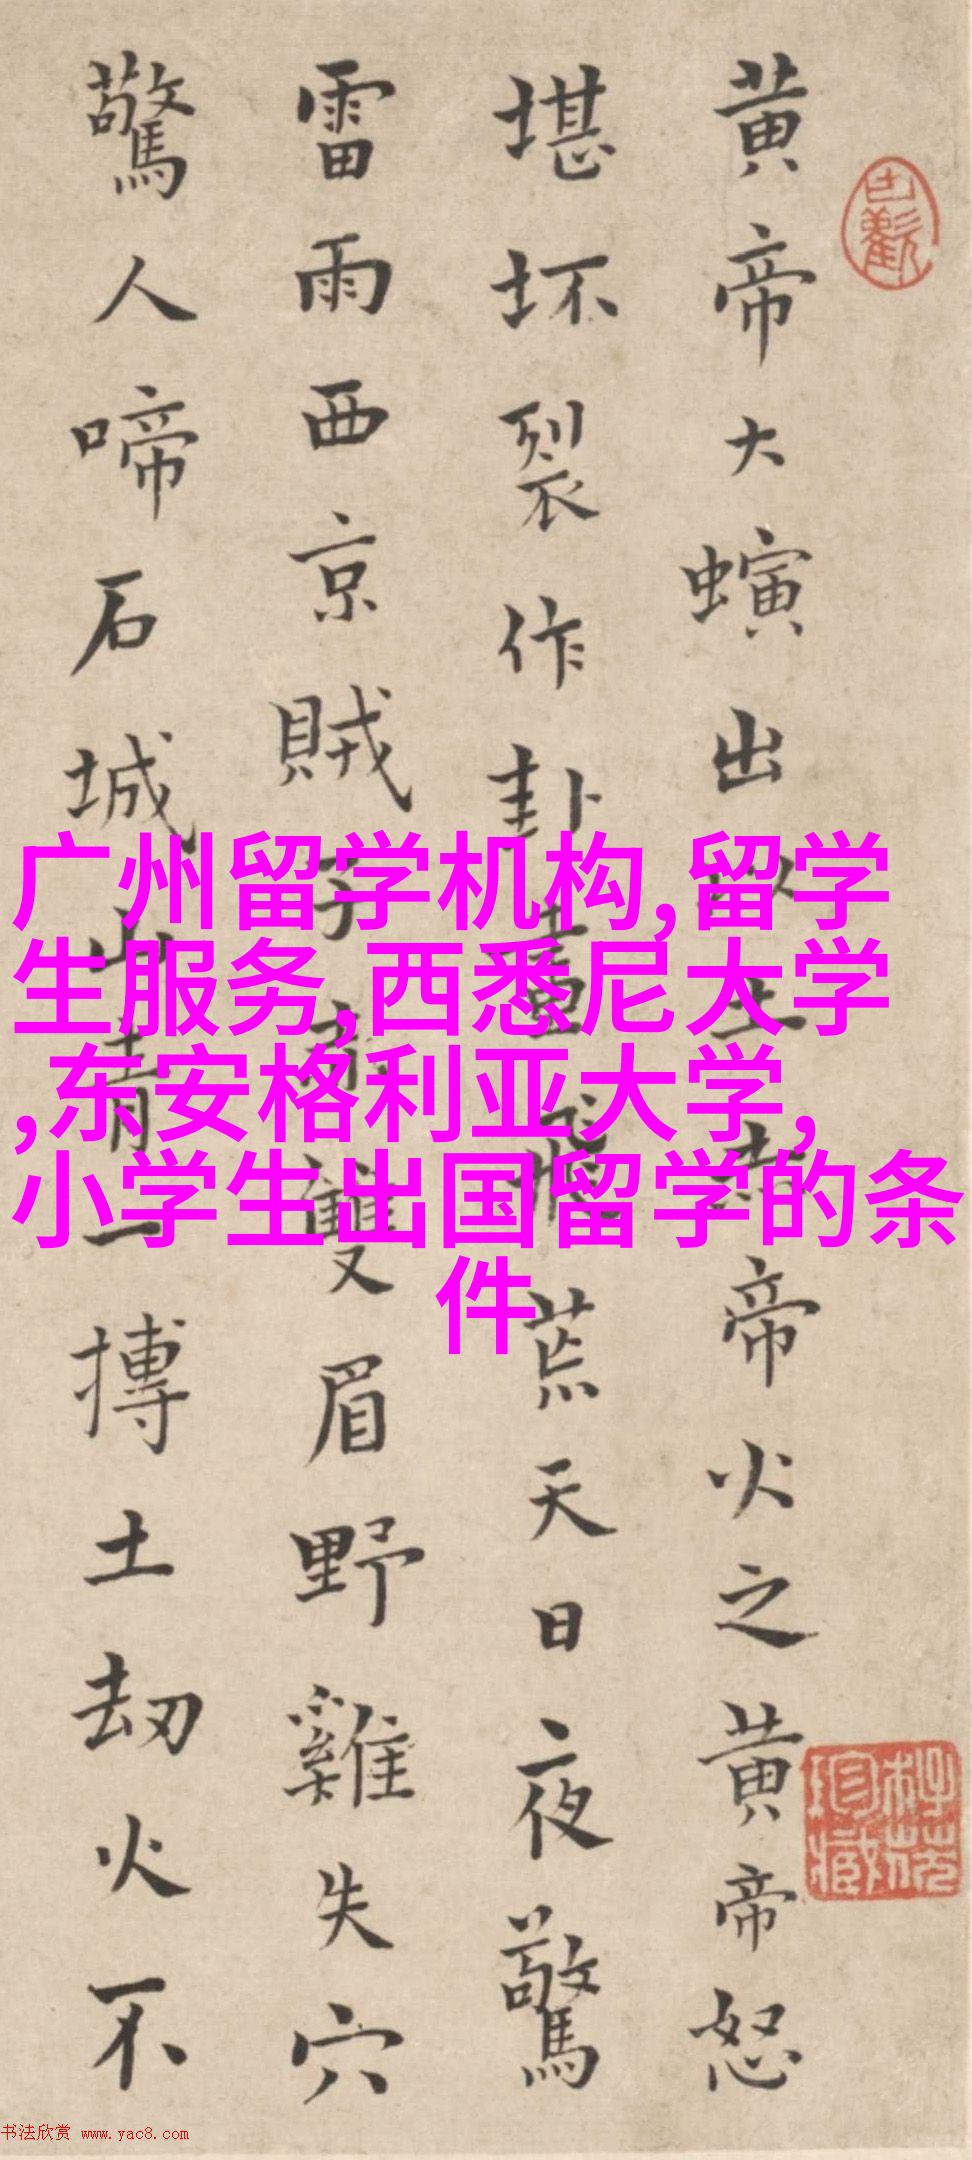 黄帝大螾出以土帝火之黄帝怒
堪坏裂作卦畫荒天日夜驚
雷雨西京賊子雙眉野雞失穴
驚人啼石城山青一摶土刼火不
广州留学机构,留学
生服务,西悉尼大学
,东安格利亚大学,
小学生出国留学的条
件
书法欣赏 www.yac8.com